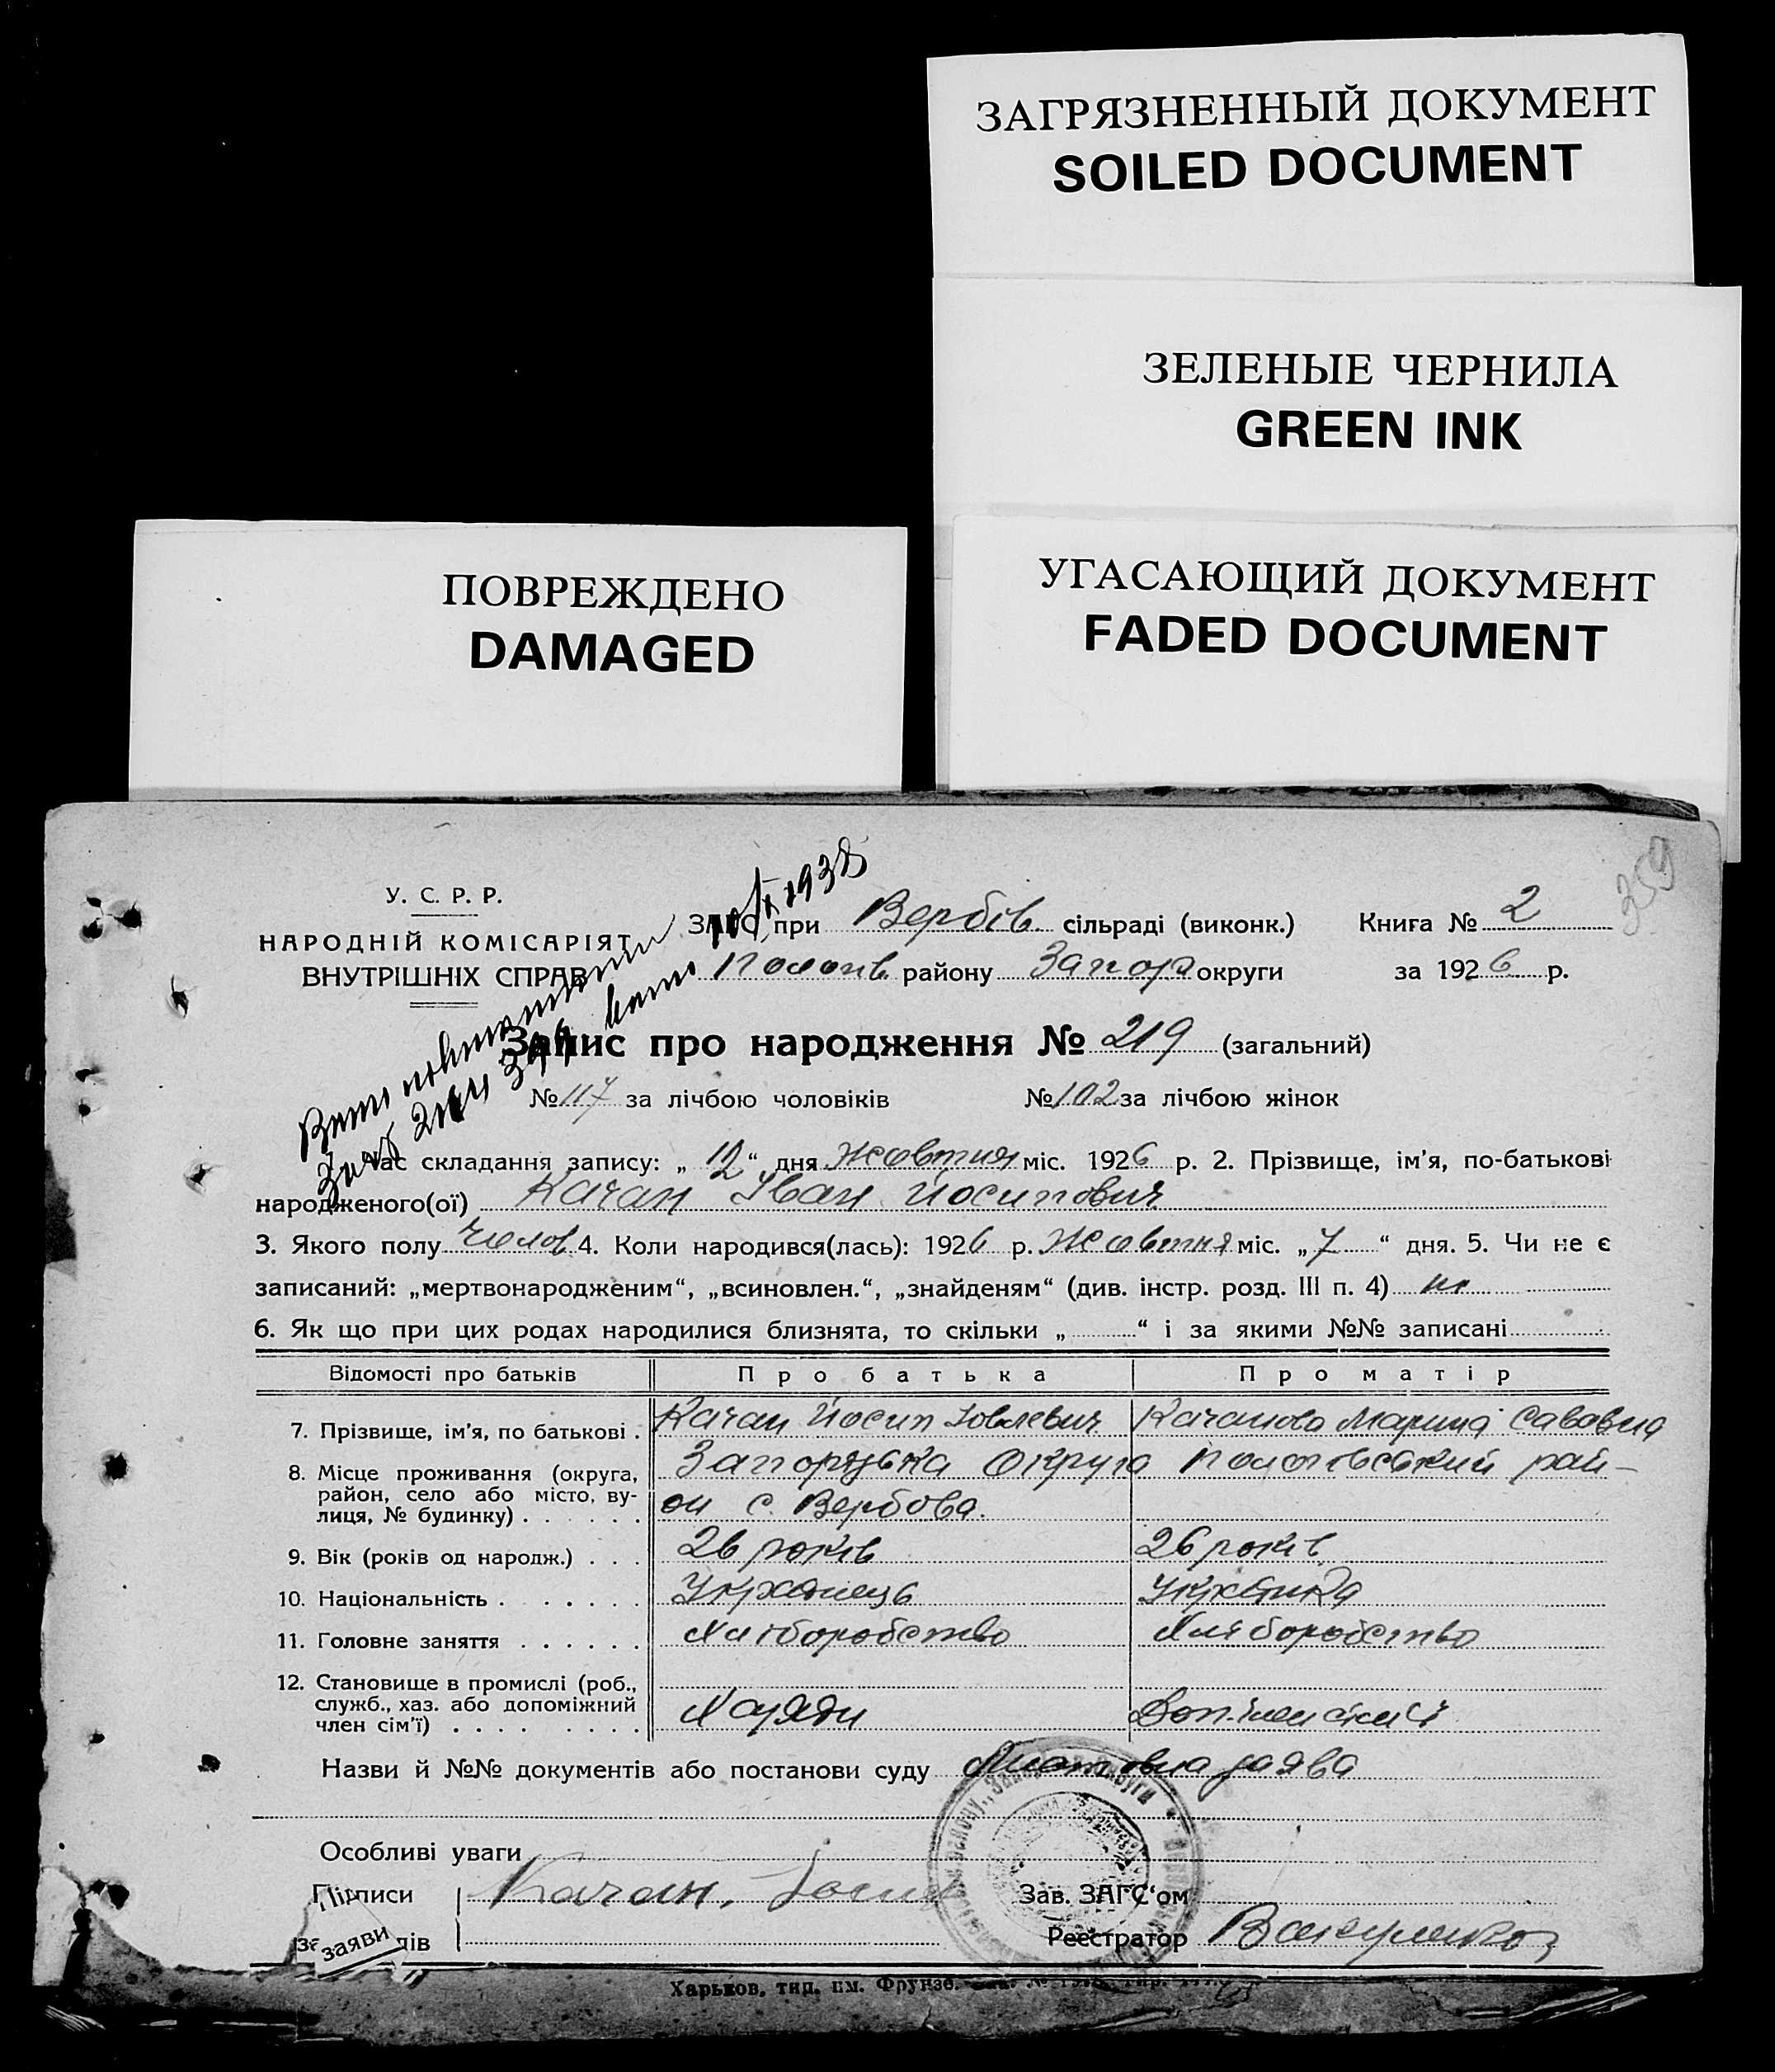 ЗАГРЯЗНЕННЫЙ ДОКУМЕНТ
SOILED DOCUMENT
ЗЕЛЕНЫЕ ЧЕРНИЛА
GREEN INK
ПОВРЕЖДЕНО
DAMAGED
УГАСАЮЩИЙ ДОКУМЕНТ
FADED DOCUMENT
359
У. С. Р. Р.
НАРОДНІЙ КОМІСАРІЯТ
ВНУТРІШНІХ СПРАВ
1938
ЗАГС при Вербів. сільраді (виконк.) Книга № 2
Пологів. району Запор округи за 1926 р.
Запис про народження № 219 (загальний)
№ 117 за лічбою чоловіків № 102 за лічбою жінок
Час складання запису: „12“ дня жовтня міс. 1926 р. 2. Прізвище, ім'я, по-батькові
народженого(ої) Качан Іван Йосипович
3. Якого полу Чолов. 4. Коли народився(лась): 1926 р. Жовтня міс. „7“ дня. 5. Чи не є
записаний: „мертвонародженим“, „всиновлен.“, „знайденям“ (див. інстр. розд. III п. 4) ні
6. Як що при цих родах народилися близнята, то скільки „ “ і за якими №№ записані
Відомості про батьків Про батька Про матір
7. Прізвище, ім'я, по батькові . Качан Йосип Іовлевич Качанова Марина Савовна
8. Місце проживання (округа, район, село або місто, вулиця, № будинку) Запорізька Округа Пологівський рай-
он с. Вербова.
9. Вік (років од народж.) . . . 26 років 26 років
10. Національність . . . . . . Українець Українка
11. Головне заняття . . . . . . Хліборобство Хліборобство
12. Становище в промислі (роб.,
служб., хаз. або допоміжний
член сім'ї) . . . . Хазяїн Доп. член сім'ї
Назви й №№ документів або постанови суду заява
Особливі уваги
Підписи Качан. Зав. ЗАГС'ом
заяви Реєстратор Вакуленко
Харьков, тип. им. Фрунзе.